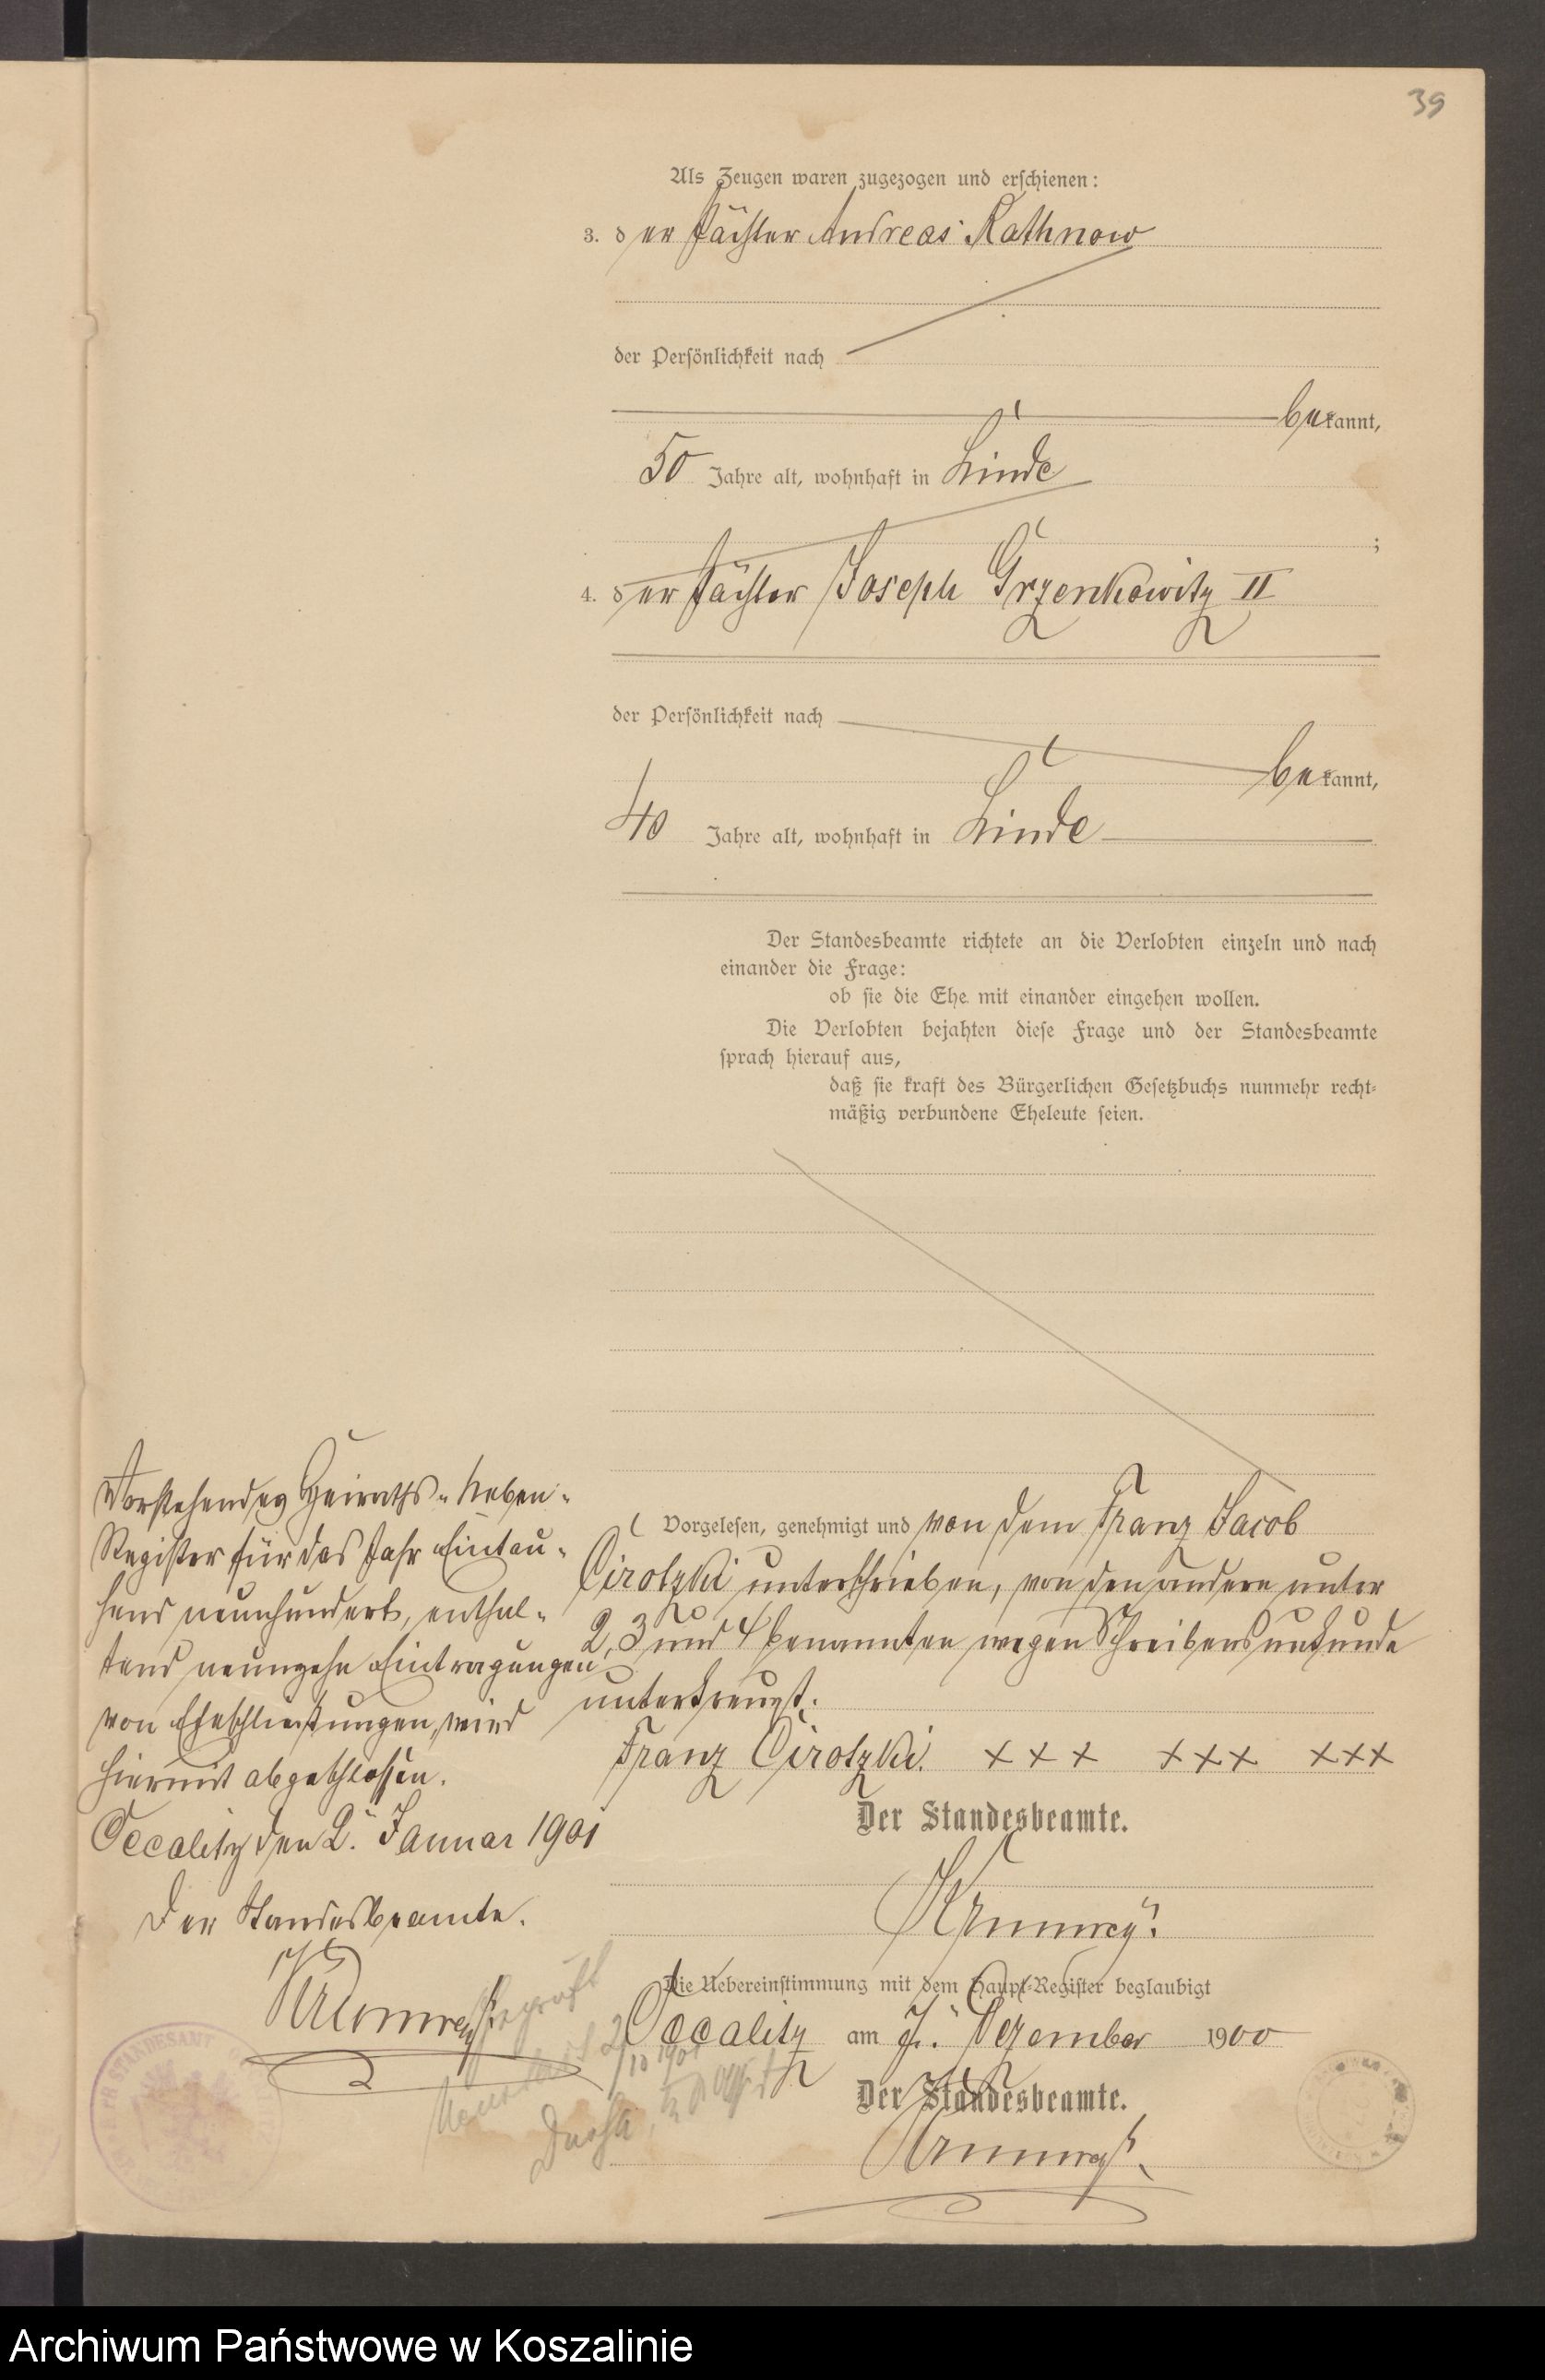 39
Als Zeugen waren zugezogen und erschienen:
3. der Pächter Andreas Rathnow
der Persönlichkeit nach
bekannt,
50 Jahre alt, wohnhaft in Linde
;
4. der Pächter Joseph Grzenkowitz II
der Persönlichkeit nach
bekannt,
40 Jahre alt, wohnhaft in Linde
Der Standesbeamte richtete an die Verlobten einzeln und nach
einander die Frage:
ob sie die Ehe mit einander eingehen wollen.
Die Verlobten bejahten diese Frage und der Standesbeamte
sprach hierauf aus,
daß sie kraft des Bürgerlichen Gesetzbuchs nunmehr recht-
mäßig verbundene Eheleute seien.
Vorgelesen, genehmigt und von dem Franz Jacob
Cirotzki unterschrieben, von den andern unter
2, 3 und 4 benannten wegen Schreibensunkunde
unterkreuzt.
Franz Cirotzki. xxx xxx xxx
Der Standesbeamte.
Die Uebereinstimmung mit dem Haupt-Register beglaubigt
Occalitz am Dezember 1900
Der Standesbeamte.
Vorstehendes Heiraths-Neben-
Register für das Jahr Eintau-
send neunhundert, enthal-
tend neunzehn Eintragungen
von Eheschließungen, wird
hiermit abgeschlossen.
Occalitz den 2. Januar 1901
Der Standesbeamte.
Archiwum Państwowe w Koszalinie